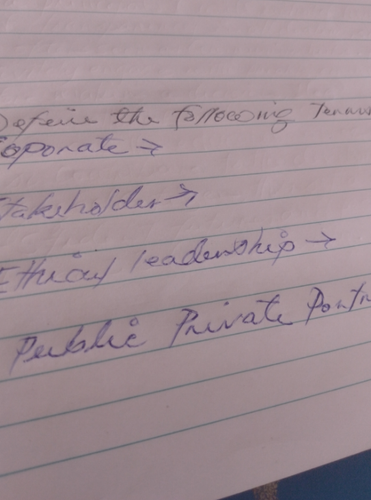 Define the following Terms
Coporate →
Stakeholder →
Ethical leadership →
Public Private Partn